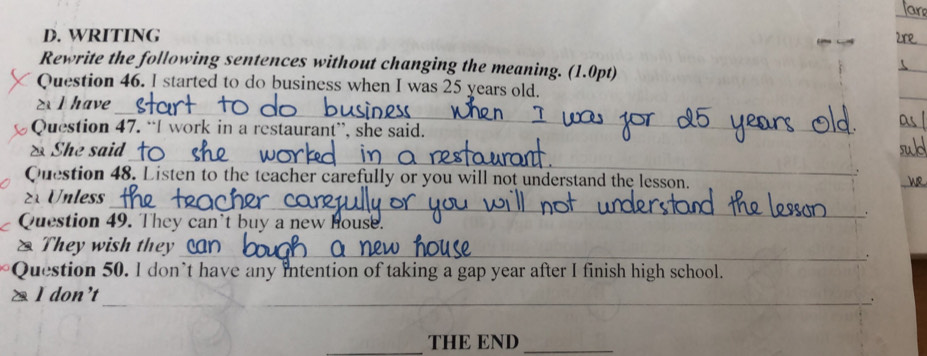 D. WRITING
Rewrite the following sentences without changing the meaning. (1.0pt)
Question 46. I started to do business when I was 25 years old.
I have start to do business when I was for 25 years old.
Question 47. “I work in a restaurant”, she said.
She said to she worked in a restaurant.
Question 48. Listen to the teacher carefully or you will not understand the lesson.
Unless the teacher carefully or you will not understand the lesson.
Question 49. They can’t buy a new House.
They wish they can bough a new house.
Question 50. I don’t have any intention of taking a gap year after I finish high school.
I don’t
THE END
as
we